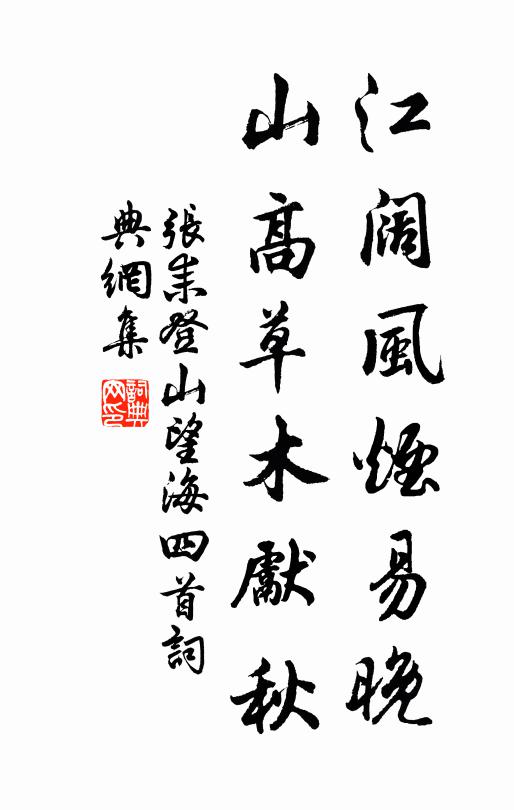 江闊風煙易晚
山高草木獻秋
張耒登山望海四首詞
典網集
詞典
网印